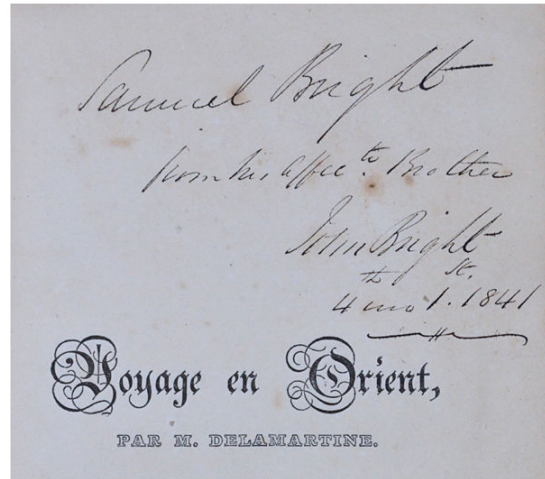 Samuel Bright
from his affecte. Brother
John Bright
4th mo 1st. 1841
Voyage en Orient,
PAR M. DELAMARTINE.